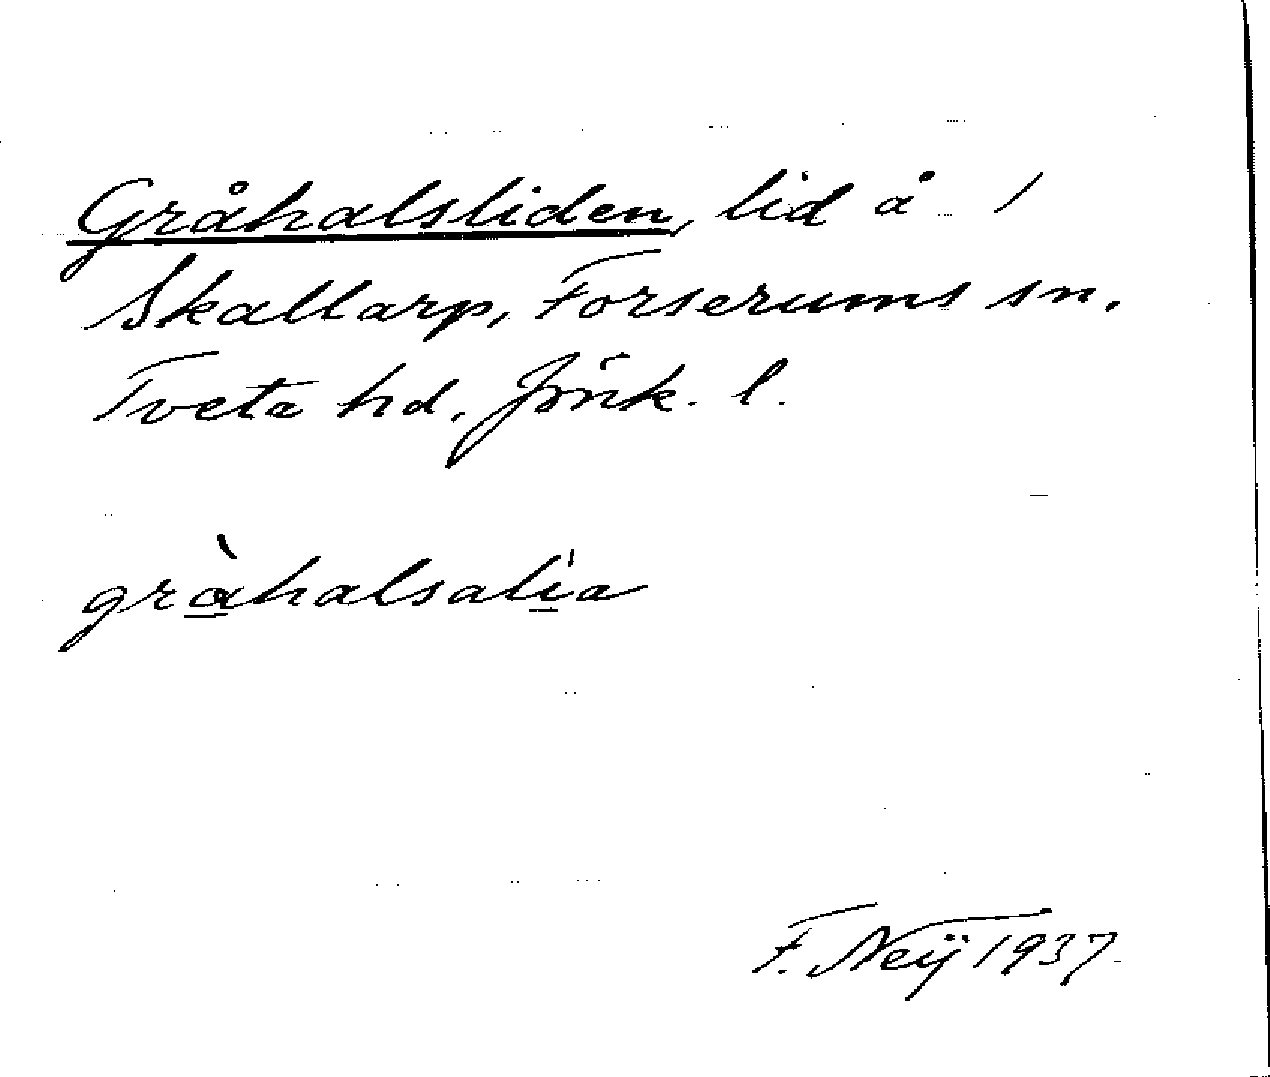 Gråhalsliden, lid å /
Skallarp, Forserums sn.
Tveta hd. Jönk. l.
gràhalsalia
F. Neij 1937